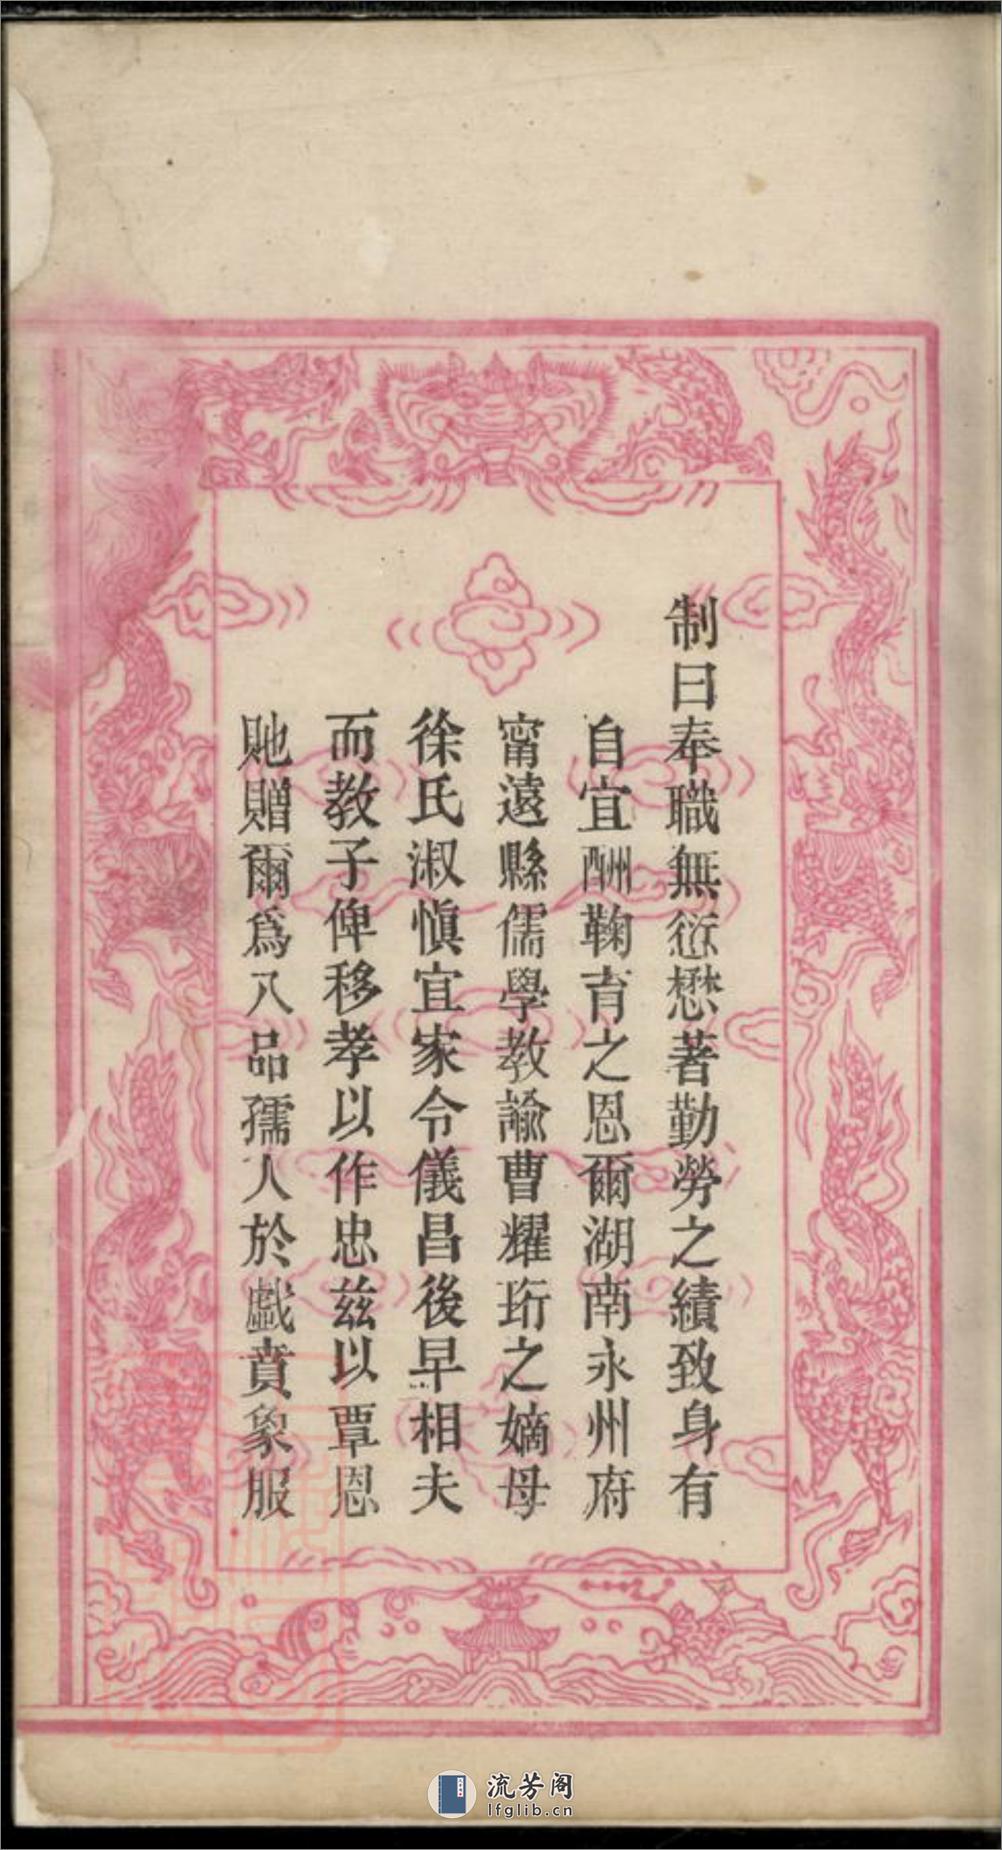 制曰奉職無愆懋著勤勞之績致身有
自宜酬鞠育之恩爾湖南永州府
甯遠縣儒學教諭曹耀珩之嫡母
徐氏淑慎宜家令儀昌後早相夫
而教子俾移孝以作忠兹以覃恩
貤贈爾爲八品孺人於戲賁象服
流芳阁
lfglib.cn